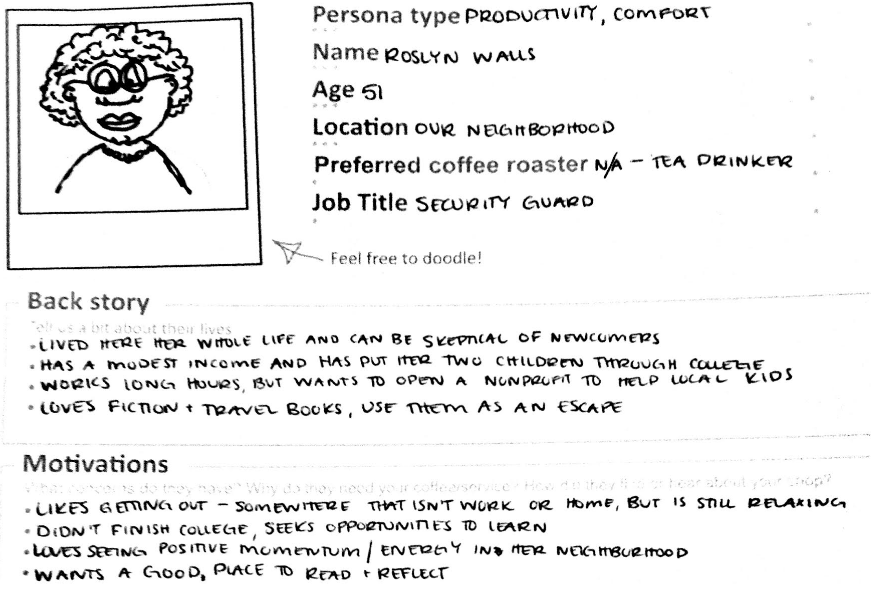 Persona type PRODUCTIVITY, COMFORT
Name ROSLYN WALLS
Age 51
Location OUR NEIGHBORHOOD
Preferred coffee roaster N/A - TEA DRINKER
Job Title SECURITY GUARD
Feel free to doodle!
Back story
Tell us a bit about their lives
• LIVED HERE HER WHOLE LIFE AND CAN BE SKEPTICAL OF NEWCOMERS
• HAS A MODEST INCOME AND HAS PUT HER TWO CHILDREN THROUGH COLLEGE
• WORKS LONG HOURS, BUT WANTS TO OPEN A NONPROFIT TO HELP LOCAL KIDS
• LOVES FICTION + TRAVEL BOOKS, USE THEM AS AN ESCAPE
Motivations
What concerns do they have? Why do they need your coffee service? How did they find or hear about your shop?
• LIKES GETTING OUT - SOMEWHERE THAT ISN'T WORK OR HOME, BUT IS STILL RELAXING
• DIDN'T FINISH COLLEGE, SEEKS OPPORTUNITIES TO LEARN
• LOVES SEEING POSITIVE MOMENTUM / ENERGY IN HER NEIGHBURHOOD
• WANTS A GOOD, PLACE TO READ + REFLECT